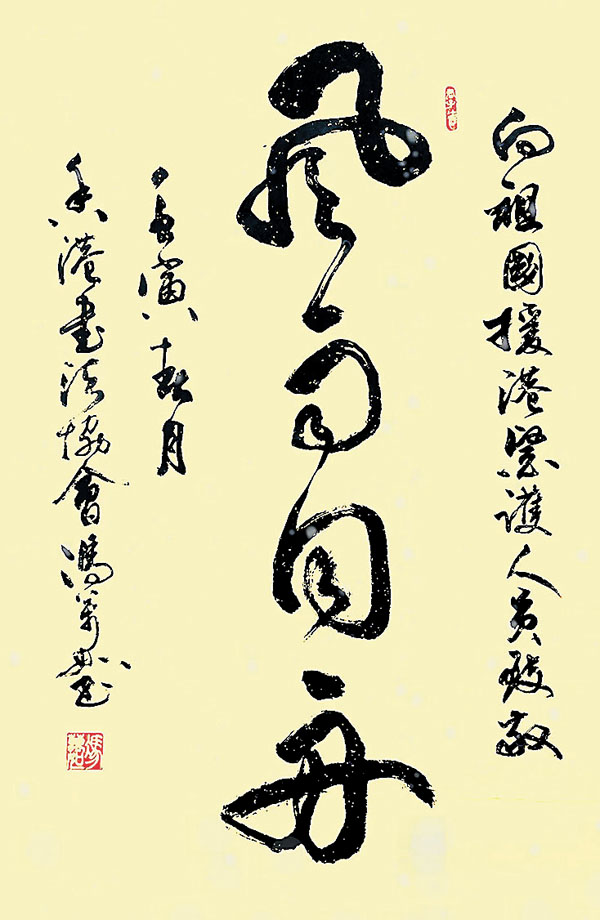 向祖國援港醫護人員致敬
風雨同舟
壬寅春月
香港書法協會馮